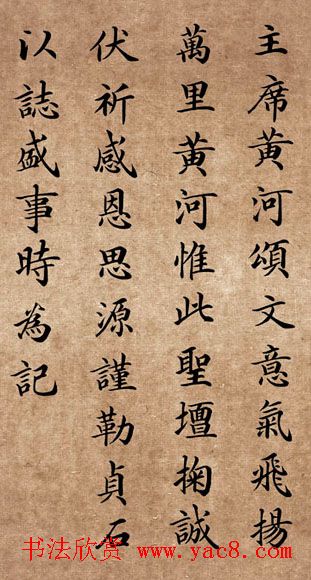 主席黃河頌文意氣飛揚
萬里黃河惟此聖壇掬誠
伏祈感恩思源謹勒貞石
以誌盛事時為記
书法欣赏:www.yac8.com